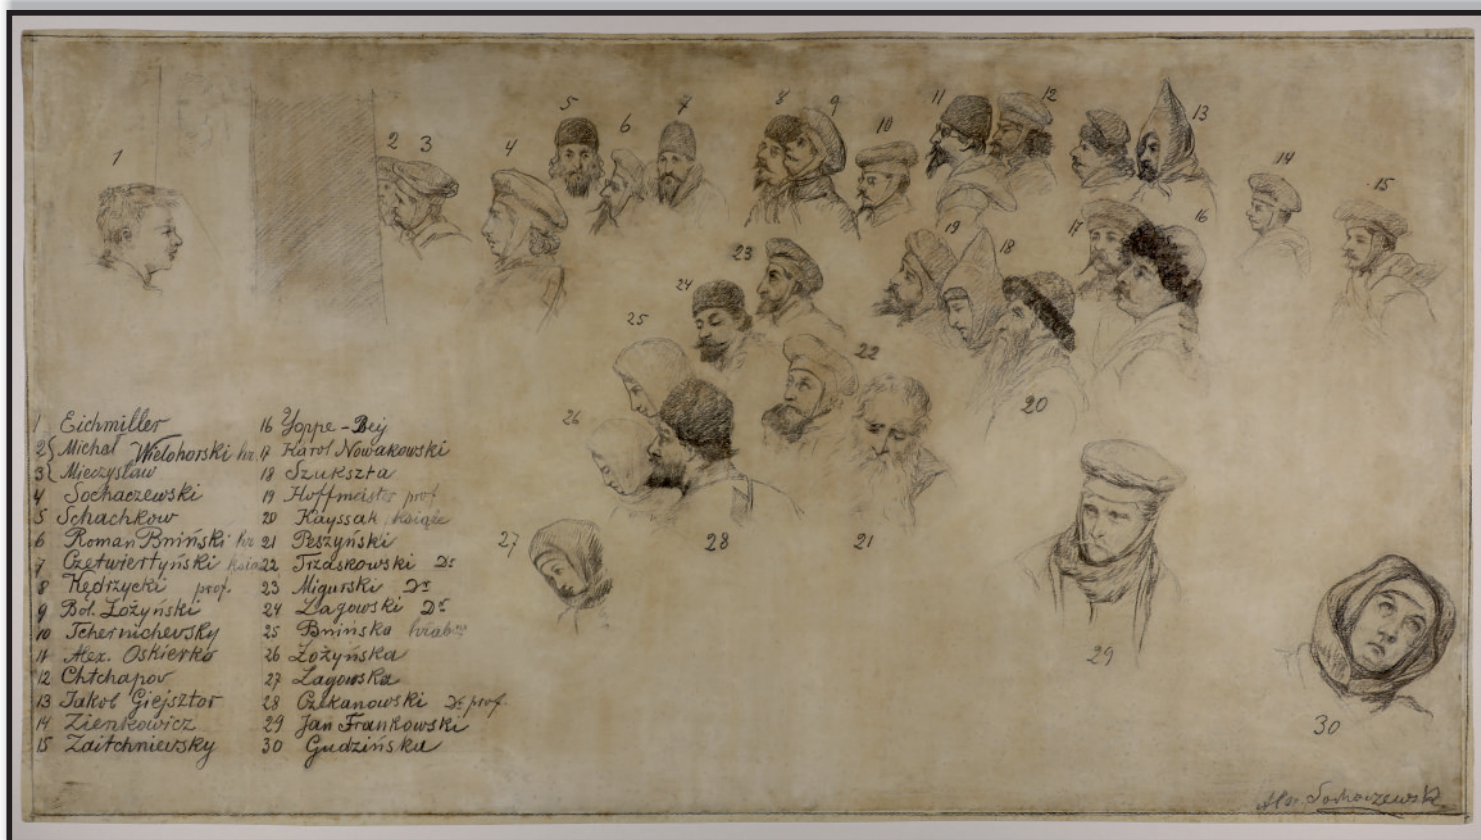 1
2
3
4
5
6
7
8
9
10
11
12
13
14
15
16
17
18
19
20
21
22
23
24
25
26
27
28
29
30
1 Eichmiller
2 Michał Wielohorski hr.
3 Mieczysław
4 Sochaczewski
5 Schachkow
6 Roman Bniński hr
7 Czetwiertyński
8 Kędrzycki prof.
9 Bol. Łożyński
10 Tchernichevsky
11 Alex. Oskierko
12 Chtchapov
13 Jakob Giejsztor
14 Zienkowicz
15 Zaitchnievsky
16 Yoppe-Bey
17 Karol Nowakowski
18 Szukszta
19 Hoffmeister prof
20 Kayssak książe
21 Peszyński
22 Trzaskowski Dr
23 Migurski Dr
24 Łagowski Dr
25 Bnińska
26 Łożyńska
27 Łagowska
28 Czekanowski Dr prof.
29 Jan Frankowski
30 Gudzińska
Alex. Sochaczewski